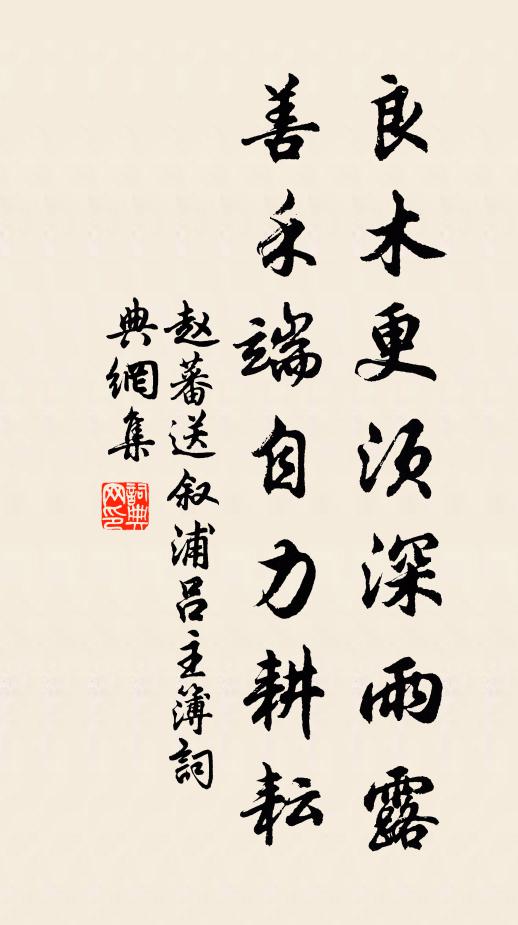 良木更须深雨露
善禾端自力耕耘
赵蕃送叙浦吕主簿詞
典網集
詞典网印